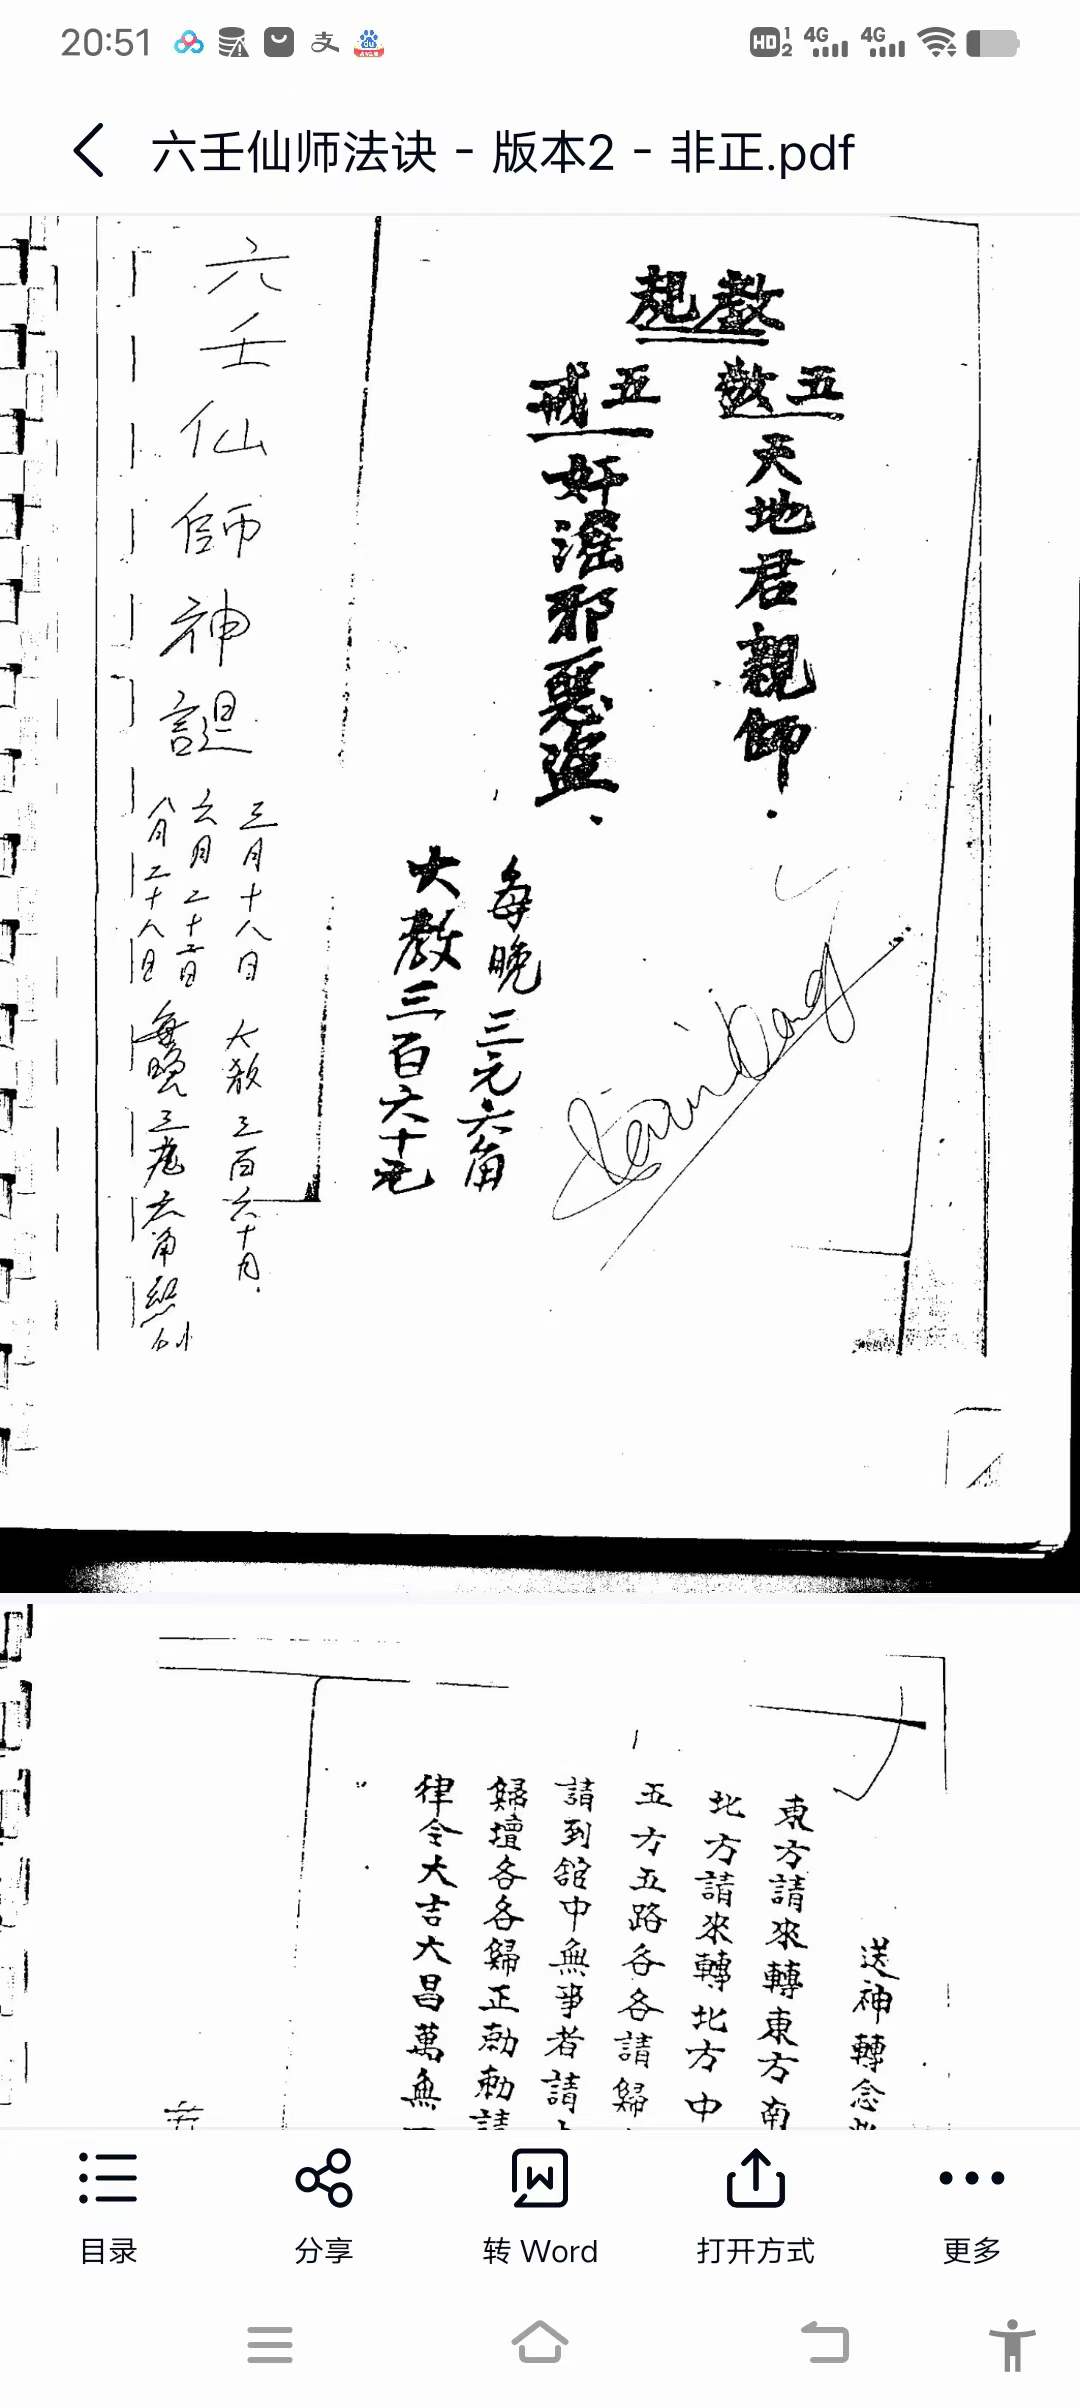 20:51
六壬仙师法诀 - 版本2 - 非正.pdf
教規
五敬
天地君親師.
五戒
奸滛邪惡盗.
每晚三元六角
大教三百六十元
六壬仙師神誕
三月十八日
六月二十二日
八月二十八日
大教三百六十
每晚三元六角
送神轉念
東方請來轉東方南
北方請來轉北方中
五方五路各各請歸
請到舘中無事者請
歸壇各各歸正勅勅請
律令大吉大昌萬無
目录
分享
转 Word
打开方式
更多